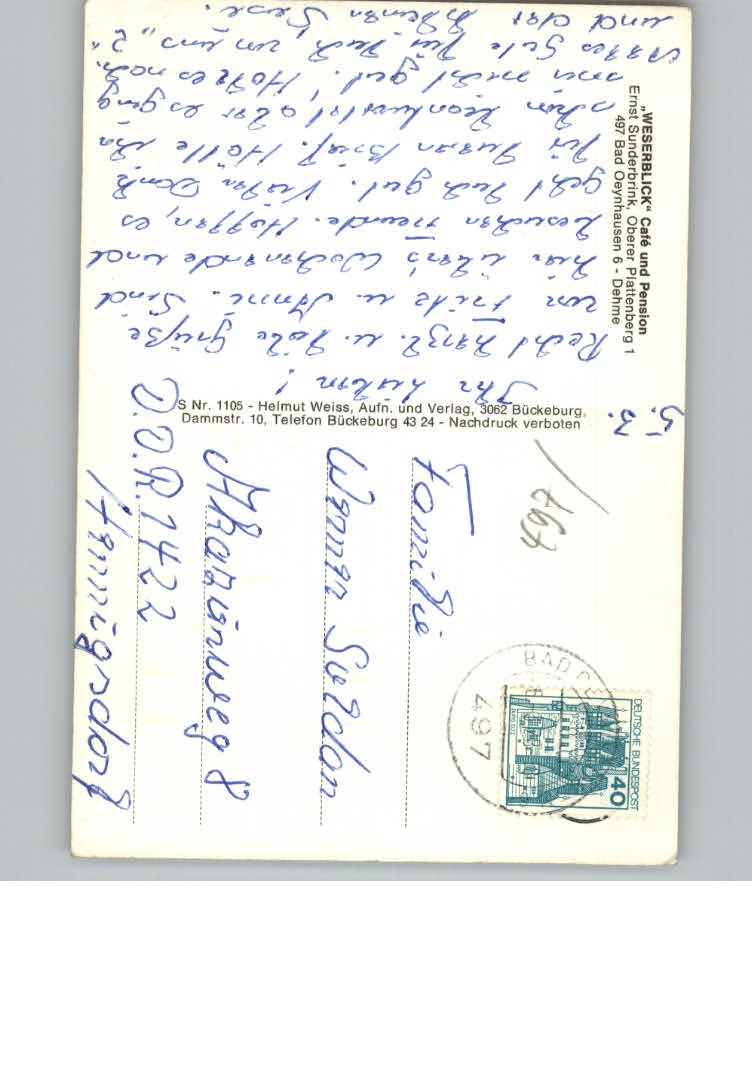 „WESERBLICK“ Café und Pension
Ernst Sunderbrink, Oberer Plattenberg 1
497 Bad Oeynhausen 6 - Dehme
5.3.
Ihr Lieben!
Recht herzl. u. liebe Grüße
von Fritz u. Anni. Sind
hier übers Wochenende und
besuchen Freunde. Hoffen, es
geht Euch gut. Vielen Dank
für Euren Brief. Hätte ihn
schon beantwortet aber es ging
mir nicht gut! Hole es nach.
Alles Gute für Euch, von uns 2
und der
S Nr. 1105 - Helmut Weiss, Aufn. und Verlag, 3062 Bückeburg,
Dammstr. 10, Telefon Bückeburg 43 24 - Nachdruck verboten
497
DEUTSCHE BUNDESPOST
40
BAD OE
497
Familie
Werner
Akazienweg 8
D.D.R. 1422
Hennigsdorf